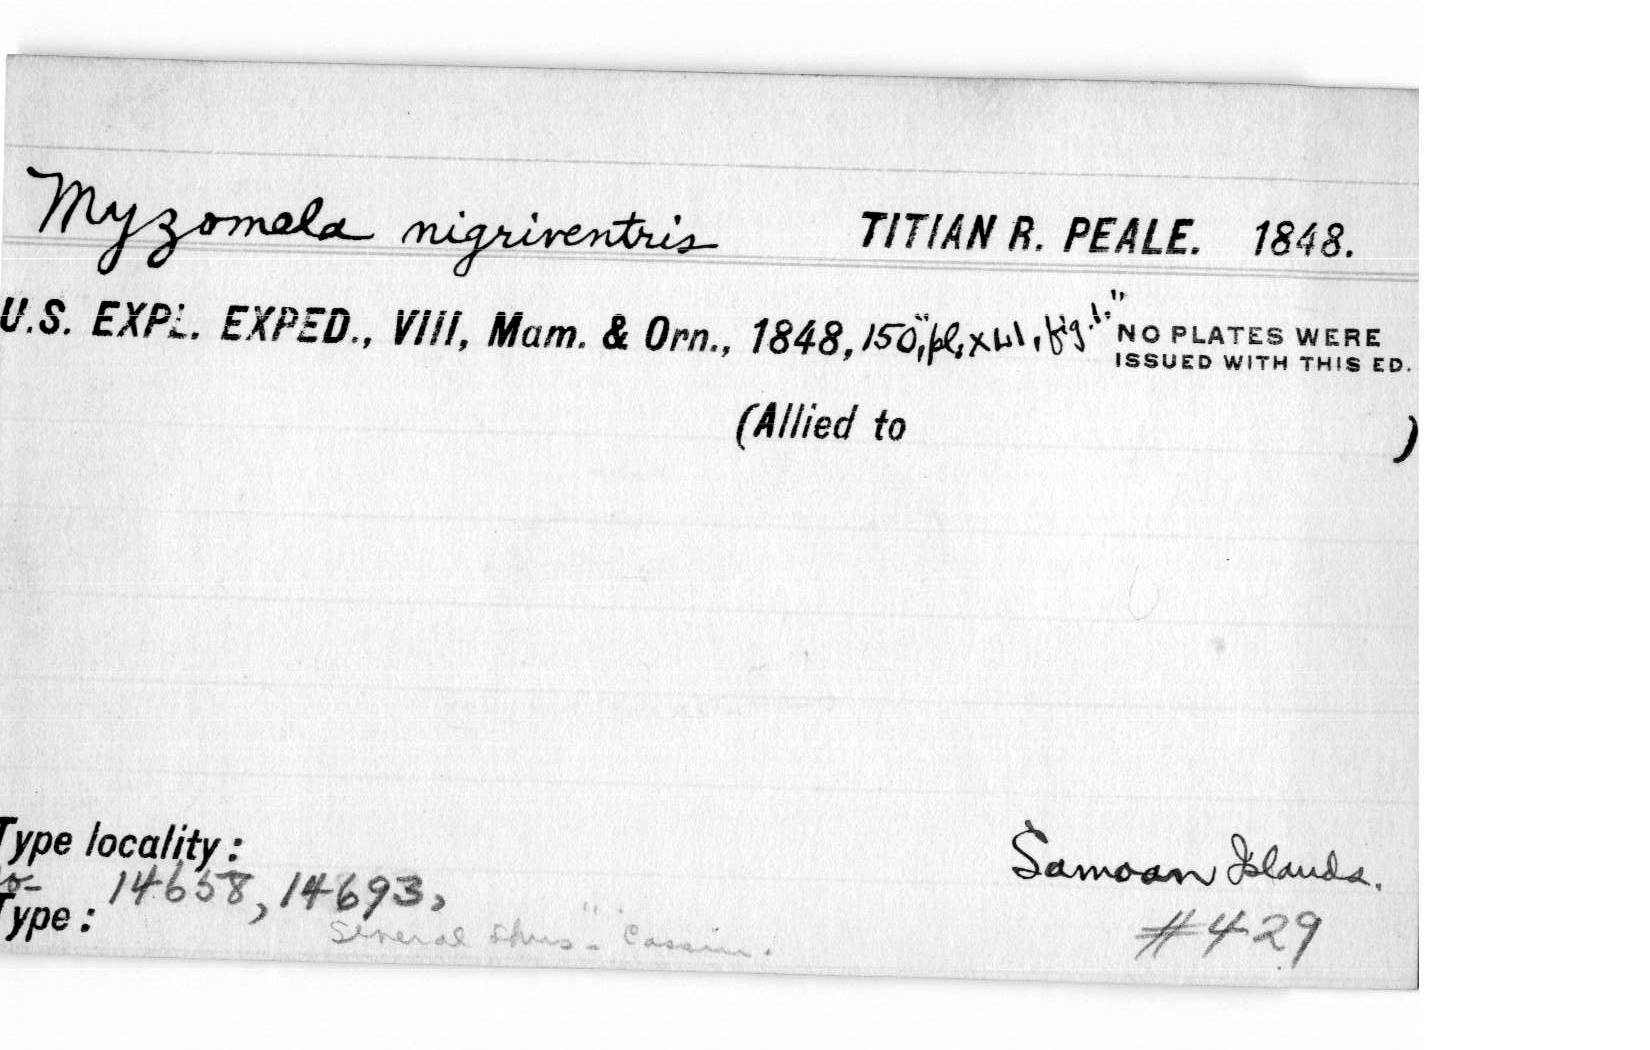 Myzomela nigriventris TITIAN R. PEALE. 1848.
U.S. EXPL. EXPED., VIII, Mam. & Orn., 1848, 150, "pl. xli, fig. 1." NO PLATES WERE
ISSUED WITH THIS ED.
(Allied to )
Type locality: Samoan Islands.
Co- 14658, 14693,
Type: Several " Cassin. #429